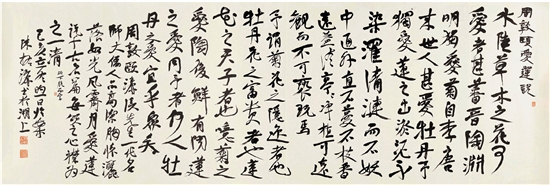 周敦頤愛蓮説
水陸草木之花可
愛者甚蕃晉陶淵
明獨愛菊自李唐
来世人甚愛牡丹予
獨愛蓮之出淤泥而不
染濯清漣而不妖
中通外直不蔓不枝香
遠益清亭亭净植可遠
觀而不可褻玩焉
予謂菊花之隱逸者也
牡丹花之富貴者也蓮
花之君子者也噫菊之
愛陶後鮮有聞蓮
之愛同予者何人牡
丹之愛宜乎衆矣
周敦頤濂溪先生一代名
師大儒人品高潔胸懷灑
落如光風霽月愛蓮
篇每覽之心襟爲
之一清
四日於樂
陳振濂於湖上